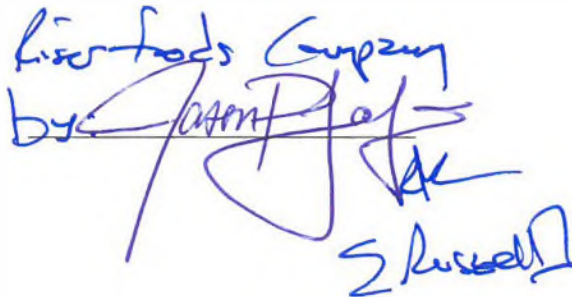 Riser Foods Company
by: Jason P
S Russell